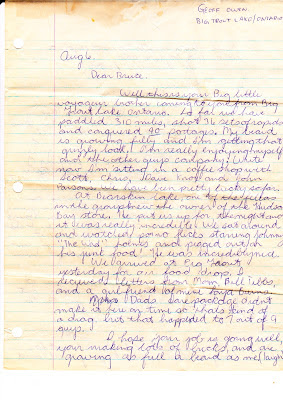 GEOFF OWEN.
BIG TROUT LAKE/ONTARIO
Aug 6.
Dear Bruce.
Well this is your Big little
voyageur brother coming to you from Big
Trout Lake Ontario. So far we have
paddled 310 miles, shot 36 sets of rapids
and conquered 40 portages. My beard
is growing fully and I'm getting that
grizzly look. I'm really enjoying myself
and the other guys company. Write
now I'm sitting in a coffee shop with
Scott, Chris, Dave Knox and John
Parsons. We have been pretty lucky so far.
At Bearskin Lake, on
smelle group knew the owner of the Hudson
Bay store. He put us up for the night and
it was really incredible. We sat around
and watched some flicks starring John
"The Wad" Holmes and pigged out on
his junk food. He was incredible
We arrived at Big Trout
yesterday for our food drop. I
received letters from Mom, Bill Jebs,
and a girlfriend of mine
Moms/Dads care package didn't
make it here on time so thats kind of
a drag but that happened to 7 out of 9
guys.
I hope your job is going well,
your making lots of bucks and are
growing as full a beard as me (laugh